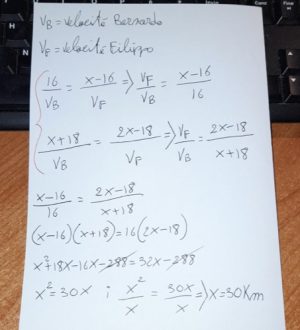 V_B = velocità Bernardo
V_F = velocità Filippo
16/V_B = x-16/V_F => V_F/V_B = x-16/16
x+18/V_B = 2x-18/V_F => V_F/V_B = 2x-18/x+18
x-16/16 = 2x-18/x+18
(x-16)(x+18)=16(2x-18)
x²+18x-16x-288=32x-288
x²=30x ; x²/x = 30x/x => x=30Km